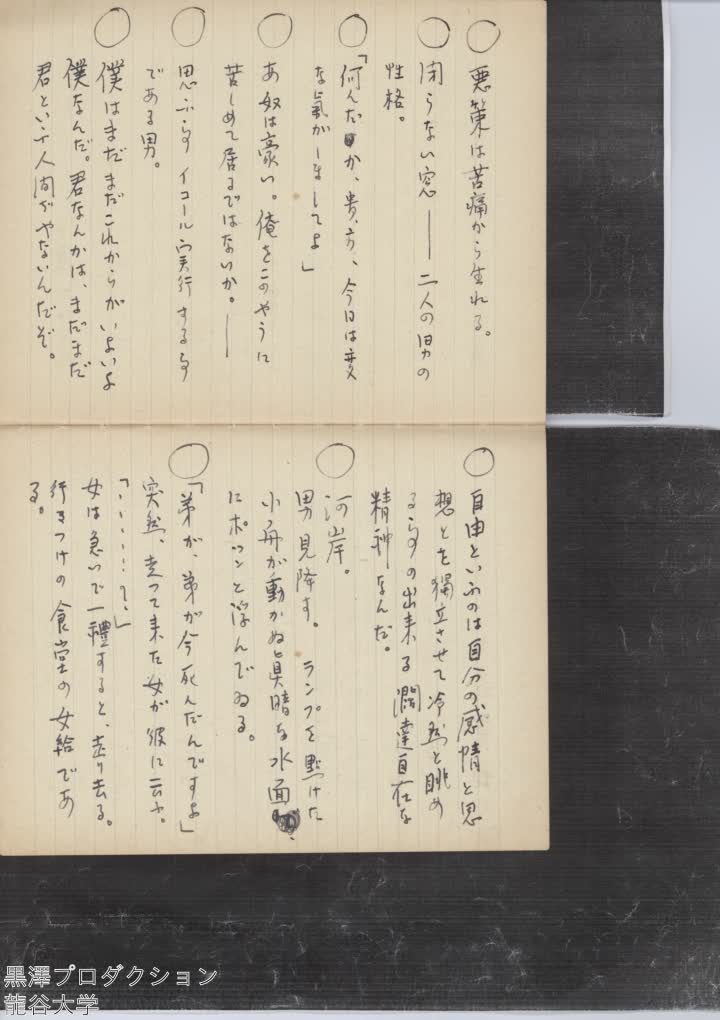 ○ 悪策は苦痛から生れる。
○ 閉らない窓 ── 二人の男の
性格。
○ 「何んだか、貴方、今日は変
な気がしましてよ」
○ あ奴は豪い。俺をこのやうに
苦しめて居るではないか。──
○ 思ふ事イコール実行する事
である男。
○ 僕はまだまだこれからがいよいよ
僕なんだ。君なんかは、まだまだ
君といふ人間ぢやないんだぞ。
○ 自由といふのは自分の感情と思
想とを獨立させて冷然と眺め
る事の出来る濶達自在な
精神なんだ。
○ 河岸。
男見降す。ランプを點けた
小舟が動かぬ眞暗な水面
にポツンと浮んでゐる。
○ 「弟が、弟が今死んだんですよ」
突然、走つて来た女が彼に云ふ。
「・・・・・・」
女は急いで一禮すると、走り去る。
行きつけの食堂の女給であ
る。
黒澤プロダクション
龍谷大学